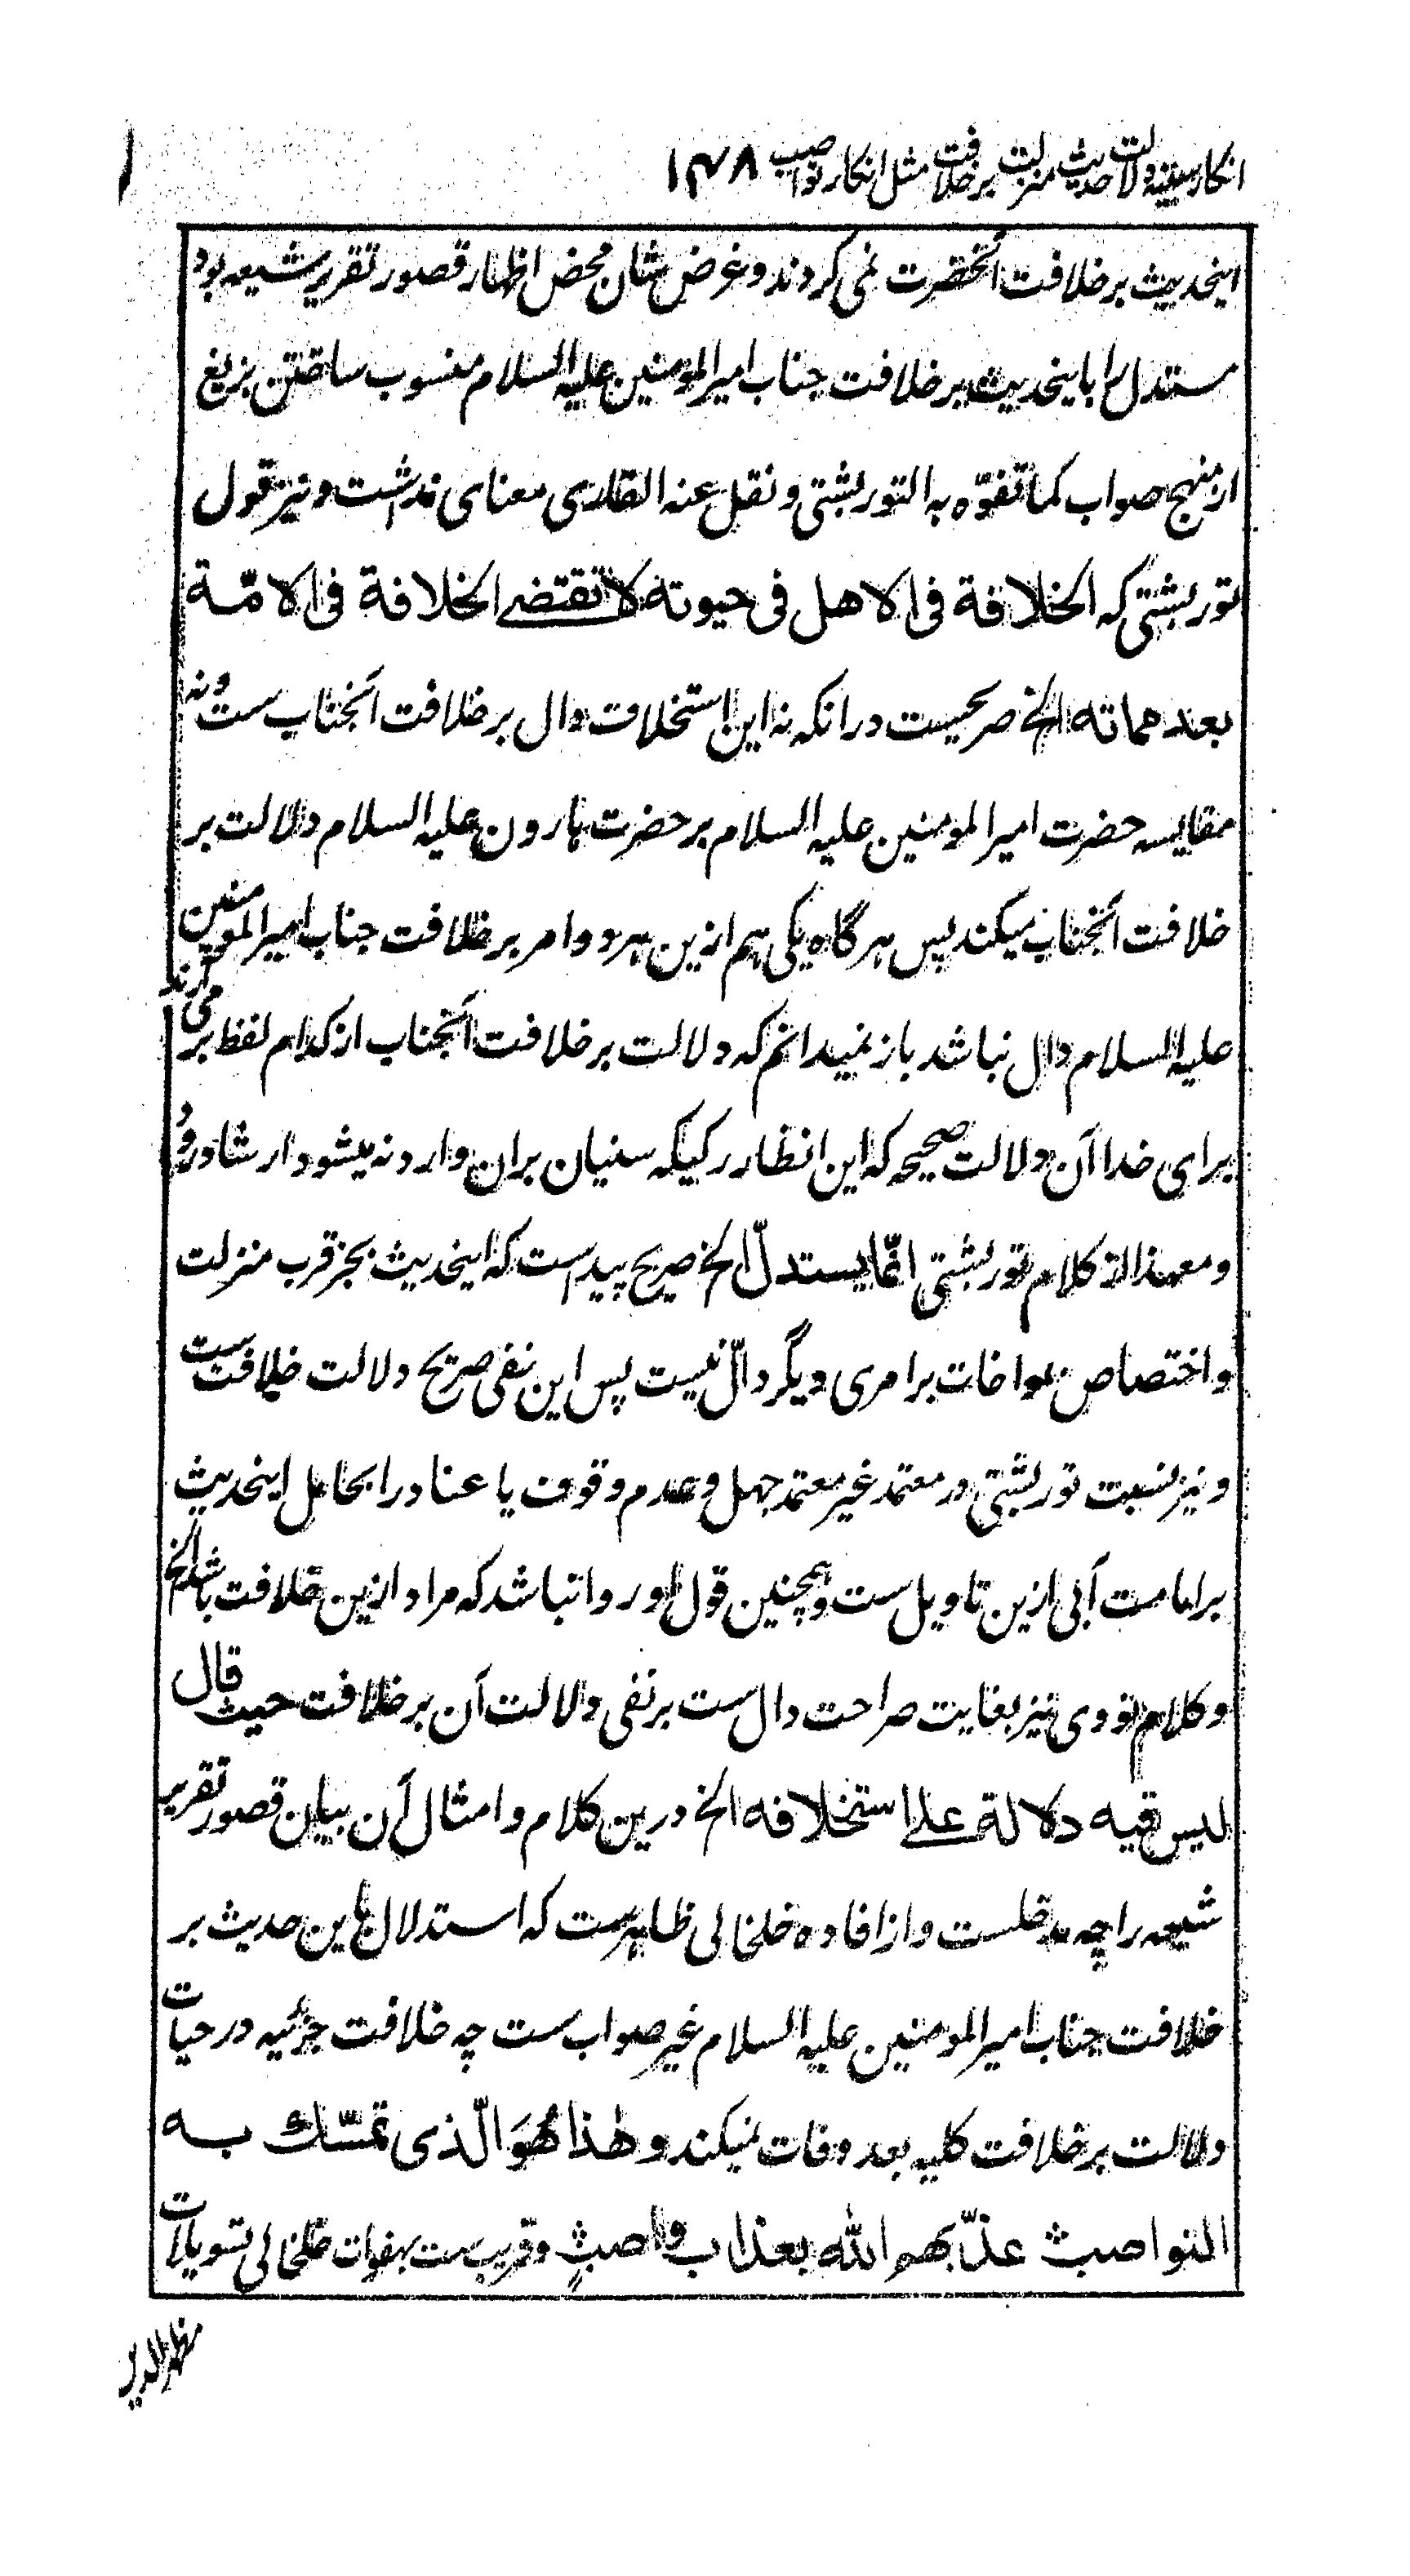 انکار سنیه دلالت حدیث منزلت بر خلافت مثل انکار نواصب ۱۴۸
اینحدیث بر خلافت آنحضرت نمی کردند و غرض شان محض اظهار قصور تقریر شیعه بود
مستدل را باینحدیث بر خلافت جناب امیرالمومنین علیه السلام منسوب ساختن بزیغ
از منهج صواب کما تفوّه به التوربشتی و نقل عنه القاری معنای نداشت و نیز قول
توربشتی که الخلافة فی الاهل فی حیوته لا تقتضی الخلافة فی الامّة
بعد مماته الخ صریحست در انکه نه این استخلاف دال بر خلافت آنجناب ست و نه
مقایسه حضرت امیرالمومنین علیه السلام بر حضرت هارون علیه السلام دلالت بر
خلافت آنجناب میکند پس هر گاه یکی هم ازین هر دو امر بر خلافت جناب امیرالمومنین
علیه السلام دال نباشد باز نمیدانم که دلالت بر خلافت آنجناب از کدام لفظ بر می آرند
برای خدا آن دلالت صحیحه که این انظار رکیکه سنیان بران وارد نه میشود ارشاد رود
و معهذا از کلام توربشتی انّما یستدلّ الخ صریح پیداست که اینحدیث بجز قرب منزلت
و اختصاص مواخات بر امری دیگر دالّ نیست پس این نفی صریح دلالت خلافت ست
و نیز نسبت توربشتی در معتمد غیر معتمد جهل و عدم وقوف یا عناد را بحامل اینحدیث
بر امامت آبی ازین تاویل ست و همچنین قول او روا نباشد که مراد ازین خلافت باشد الخ
و کلام نووی نیز بغایت صراحت دال ست بر نفی دلالت آن بر خلافت حیث قال
لیس فیه دلالة علی استخلافه الخ درین کلام و امثال آن بیان قصور تقریر
شیعه را چه مدخلست و از افاده خلخالی ظاهرست که استدلال باین حدیث بر
خلافت جناب امیرالمومنین علیه السلام غیر صواب ست چه خلافت جزئیه در حیات
دلالت بر خلافت کلیه بعد وفات نمیکند و هذا هُوَ الّذی تمسّك به
النواصب عذّبهم الله بعذاب واصبٍ و قریب ست بهفوات خلخالی تسویلات
مظهر الدین